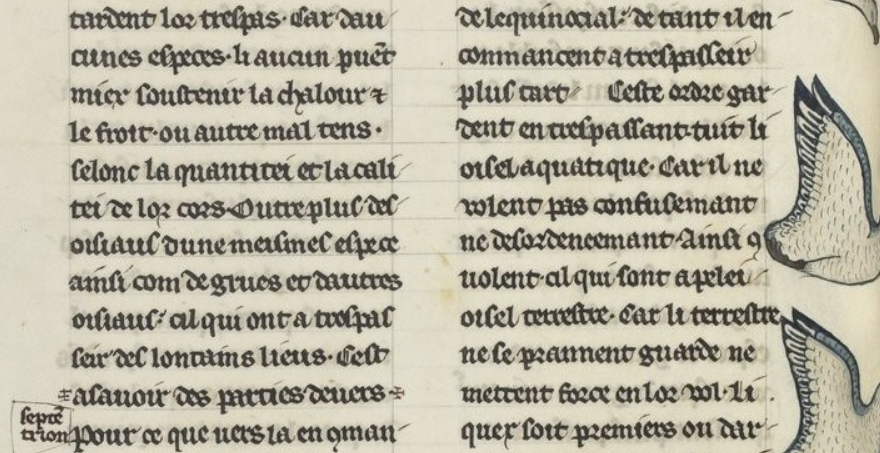 tardent lor trespas. Car dau
cunes especes. li aucun puēt
miex soustenir la chalour ⁊
le froit. ou autre mal tens.
selonc la quantitei et la cali
tei de lor cors. Outre plus des
oisiaus dune meismes espece
ainsi com de grues et dautres
oisiaus. cil qui ont a trespas
seir des lontains lieus. Cest
asauoir des parties deuers
septē
trion
Pour ce que uers la en ꝯman
de lequinocial. de tant il en
commancent a trespasseir
plus tart Ceste ordre gar
dent en trespassant. tuit li
oisel aquatique. Car il ne
volent pas confusemant
ne desordeneemant. Ainsi q
uolent. cil qui sont apelei
oisel terrestre. Car li terrestre
ne se prannent guarde ne
mettent force en lor vol. li
quex soit premiers ou dar